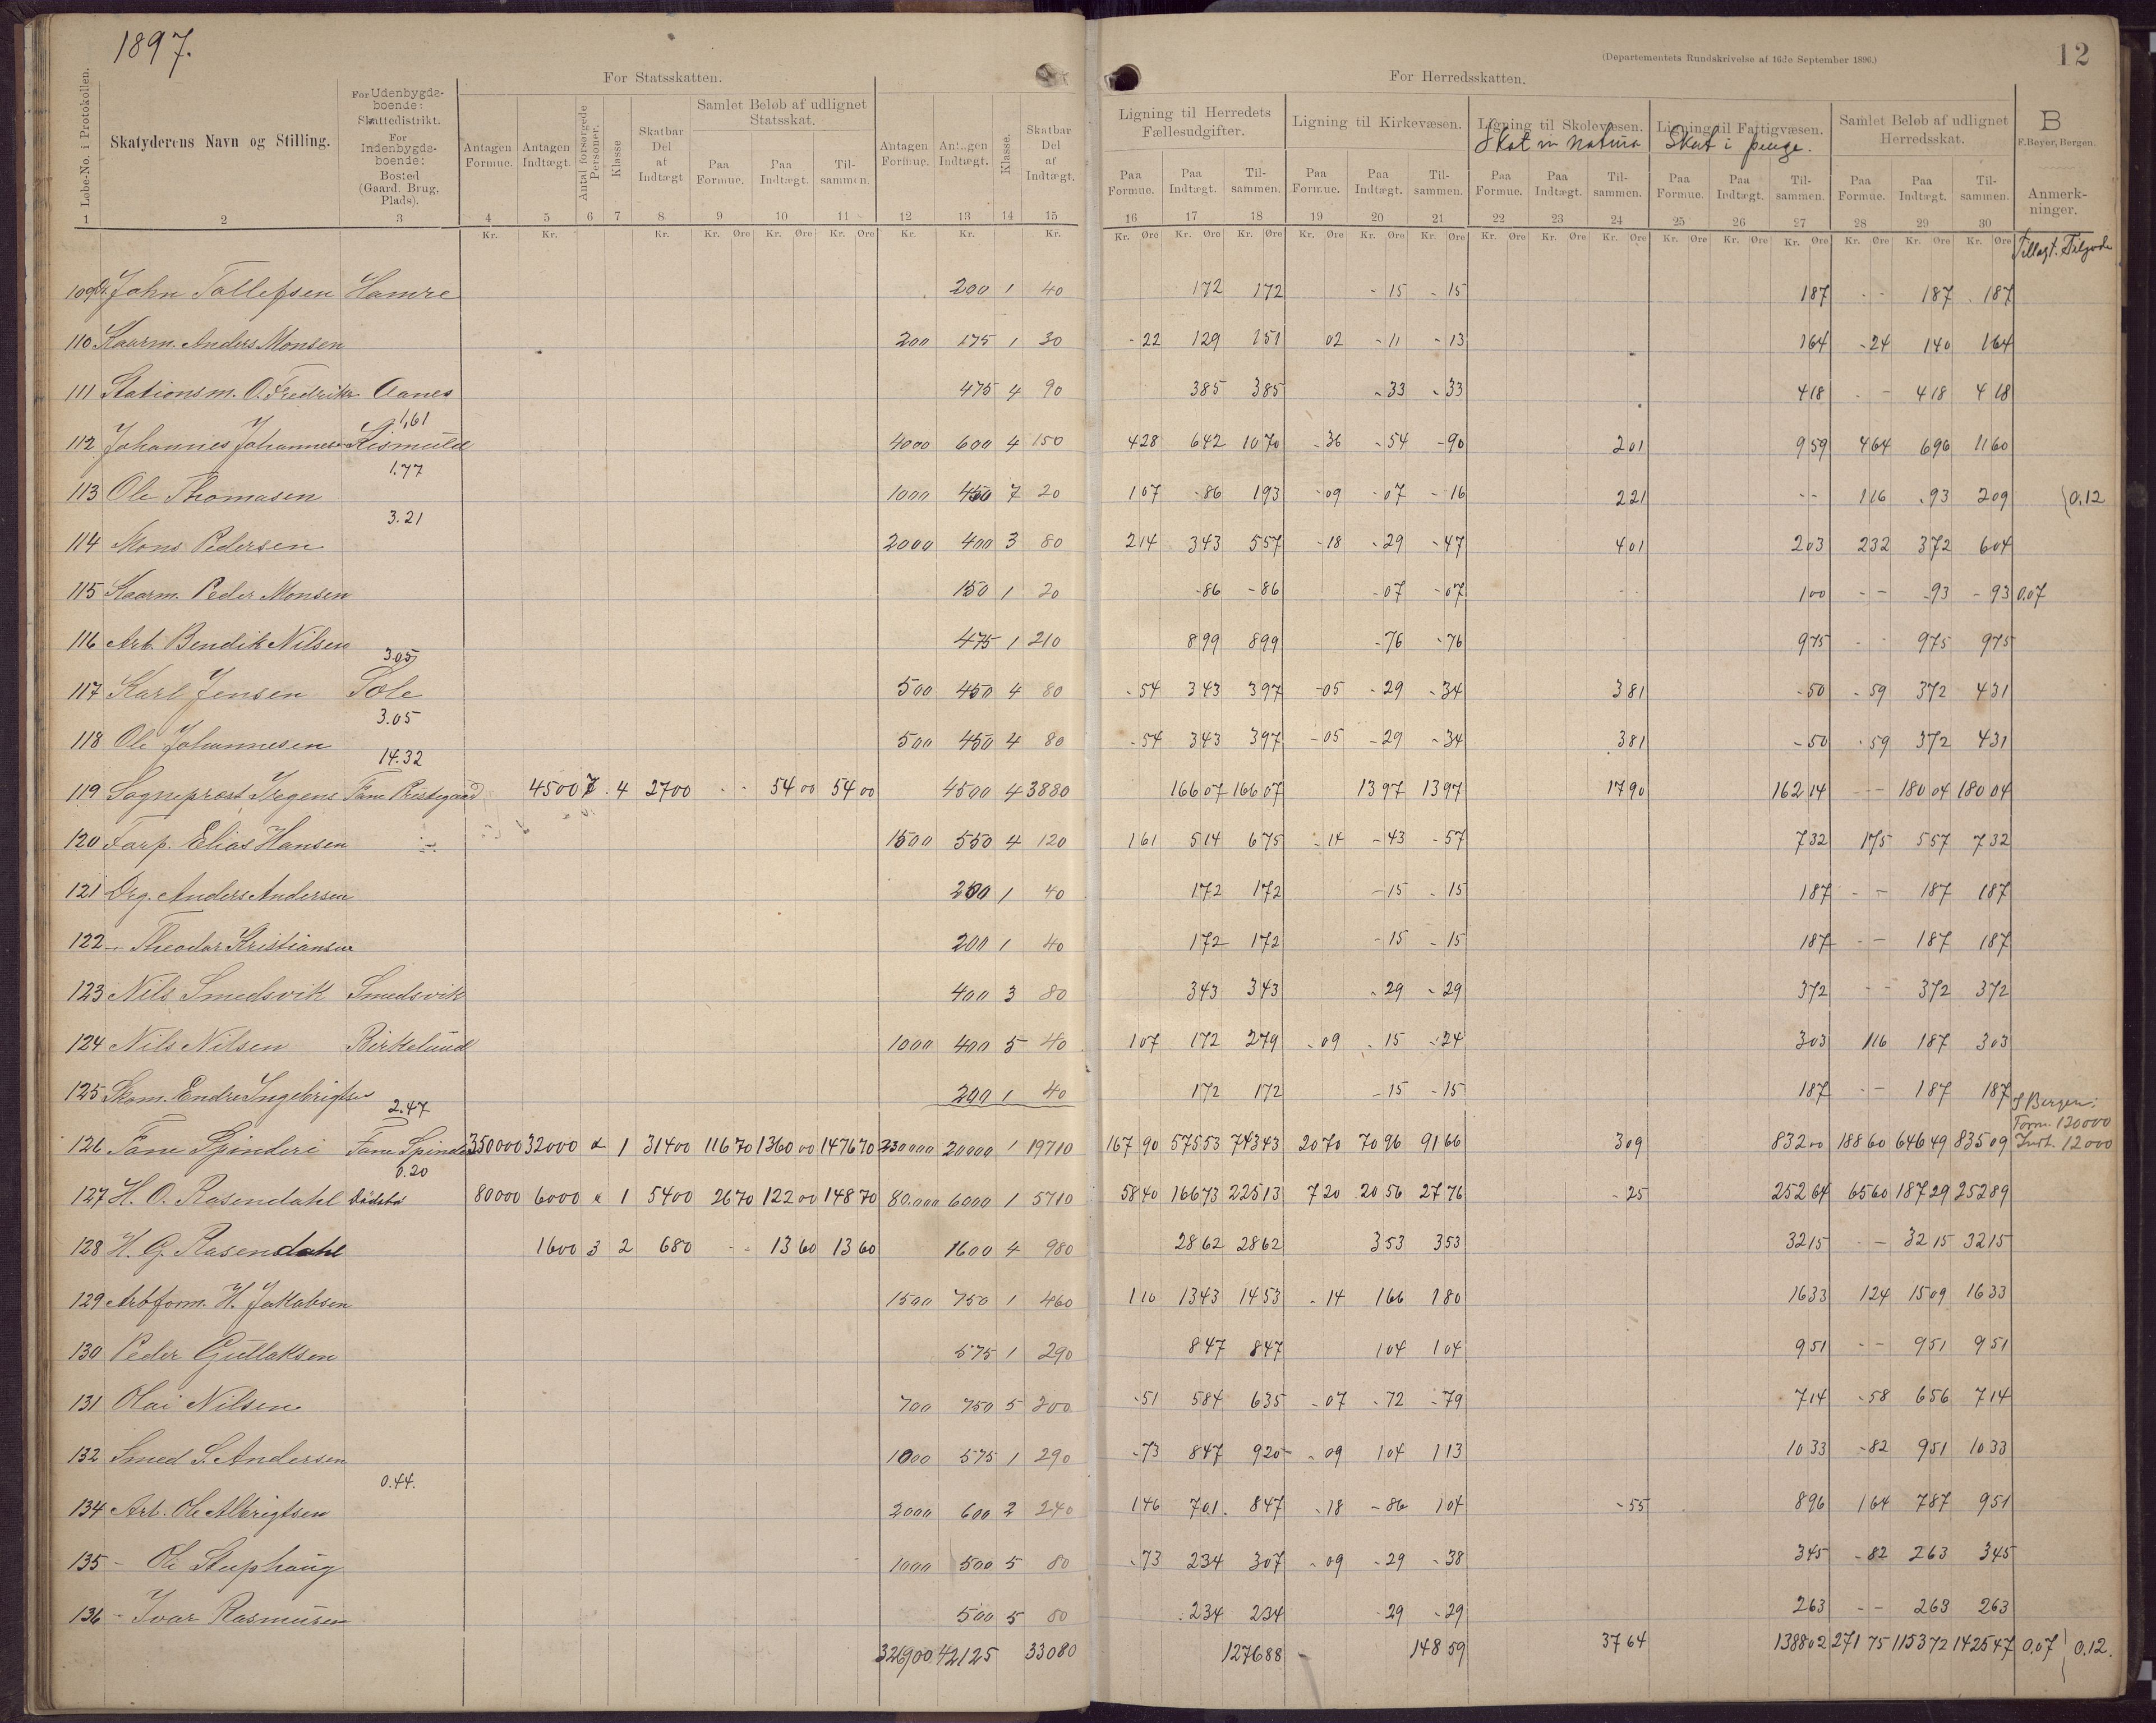 1897.
12
(Departementets Rundskrivelse af 16de September 1896.)
For Statsskatten.
For Herredsskatten.
Løbe-No. i Protokollen.
Skatyderens Navn og Stilling.
For Udenbygdsboende: Skattedistrikt. For Indenbygdsboende: Bosted (Gaard, Brug, Plads).
Antagen Formue. Antagen Indtægt. Antal forsørgede Personer. Klasse Skatbar Del af Indtægt
Samlet Beløb af udlignet Statsskat.
Paa Formue. Paa Indtægt. Tilsammen.
Antagen Formue. Antagen Indtægt. Klasse. Skatbar Del af Indtægt.
Ligning til Herredets Fællesudgifter. Ligning til Kirkevæsen. Ligning til Skolevæsen. Ligning til Fattigvæsen. Samlet Beløb af udlignet Herredsskat.
Skat in natura Skat i penge.
Paa Formue. Paa Indtægt. Tilsammen. Paa Formue. Paa Indtægt. Tilsammen. Paa Formue. Paa Indtægt. Tilsammen. Paa Formue. Paa Indtægt. Tilsammen. Paa Formue. Paa Indtægt. Tilsammen.
B
F. Beyer, Bergen.
Anmerkninger.
1 2 3 4 5 6 7 8 9 10 11 12 13 14 15 16 17 18 19 20 21 22 23 24 25 26 27 28 29 30
Kr. Kr. Kr. Kr. Øre Kr. Øre Kr. Øre Kr. Kr. Kr. Kr. Øre Kr. Øre Kr. Øre Kr. Øre Kr. Øre Kr. Øre Kr. Øre Kr. Øre Kr. Øre Kr. Øre Kr. Øre Kr. Øre Kr. Øre Kr. Øre Kr. Øre
Tillagt. Tilgode
109 John Tollefsen Hamre 200 1 40 172 172 - 15 - 15 187 - - 187 187
110 Kaarm. Anders Monsen 200 175 1 30 - 22 129 151 02 - 11 - 13 164 - 24 140 164
111 Stationsm. O. Fredriks Aanes 475 4 90 385 385 - 33 - 33 418 - 418 418
1,61
112 Johannes Johannesen Kismuld 4000 600 4 150 428 642 1070 - 36 - 54 - 90 201 959 464 696 1160
1.77
113 Ole Thomasen 1000 450 7 20 107 - 86 193 - 09 - 07 - 16 221 - - 116 - 93 209 0.12
3.21
114 Mons Pedersen 2000 400 3 80 214 343 557 - 18 - 29 - 47 401 203 232 372 604
115 Kaarm. Peder Monsen 150 1 20 - 86 - 86 - 07 - 07 100 - - - 93 - 93 0.07
116 Arb. Bendik Nilsen 475 1 210 899 899 - 76 - 76 975 - - 975 975
3.05
117 Karl Jensen Søle 500 450 4 80 - 54 343 397 - 05 - 29 - 34 381 - 50 - 59 372 431
3.05
118 Ole Johannesen 500 450 4 80 - 54 343 397 - 05 - 29 - 34 381 - 50 - 59 372 431
14.32
119 Sogneprest Irgens Fane Prestegaard 4500 7 4 2700 - - 54 00 54 00 4500 4 3880 166 07 166 07 13 97 13 97 17 90 162 14 - - 180 04 180 04
120 Farp. Elias Hansen 1500 550 4 120 161 514 675 - 14 - 43 - 57 732 175 557 732
121 Drg. Anders Andersen 200 1 40 172 172 - 15 - 15 187 - - 187 187
122 - Theodor Kristiansen 200 1 40 172 172 - 15 - 15 187 - - 187 187
123 Nils Smedsvik Smedsvik 400 3 80 343 343 - 29 - 29 372 - - 372 372
124 Nils Nilsen Birkelund 1000 400 5 40 107 172 279 - 09 - 15 - 24 303 116 187 303
125 Skom. Endre Ingebrigtsen 200 1 40 172 172 - 15 - 15 187 - - 187 187
2.47
I Bergen:
Form. 120000
126 Fane Spinderi Fane Spinderi 350000 32000 1 31400 116 70 1360 00 1476 70 230000 20000 1 19710 167 90 575 53 743 43 20 70 70 96 91 66 309 832 00 188 60 646 49 835 09 Indt. 12000
0.20
127 H. O. Rosendahl 80000 6000 1 5400 26 70 122 00 148 70 80.000 6000 1 5710 58 40 166 73 225 13 7 20 20 56 27 76 - 25 252 64 65 60 187 29 252 89
128 H. G. Rosendahl 1600 3 2 680 - - 13 60 13 60 1600 4 980 28 62 28 62 3 53 3 53 32 15 - 32 15 32 15
129 Arbform. H. Jakobsen 1500 750 1 460 110 1343 1453 - 14 166 180 1633 124 1509 1633
130 Peder Gullaksen 575 1 290 847 847 104 104 951 - - 951 951
131 Olai Nilsen 700 750 5 200 - 51 584 635 - 07 - 72 - 79 714 - 58 656 714
132 Smed S. Andersen 1000 575 1 290 - 73 847 920 - 09 104 113 1033 - 82 951 1033
0.44.
134 Arb. Ole Albrigtsen 2000 600 2 240 146 701 847 - 18 - 86 104 - 55 896 164 787 951
135 - Ole Stephaug 1000 500 5 80 - 73 234 307 - 09 - 29 - 38 345 - 82 263 345
136 - Ivar Rasmusen 500 5 80 234 234 - 29 - 29 263 - - 263 263
326900 42125 33080 1276 88 148 59 37 64 1388 02 271 75 1153 72 1425 47 0.07 0.12.